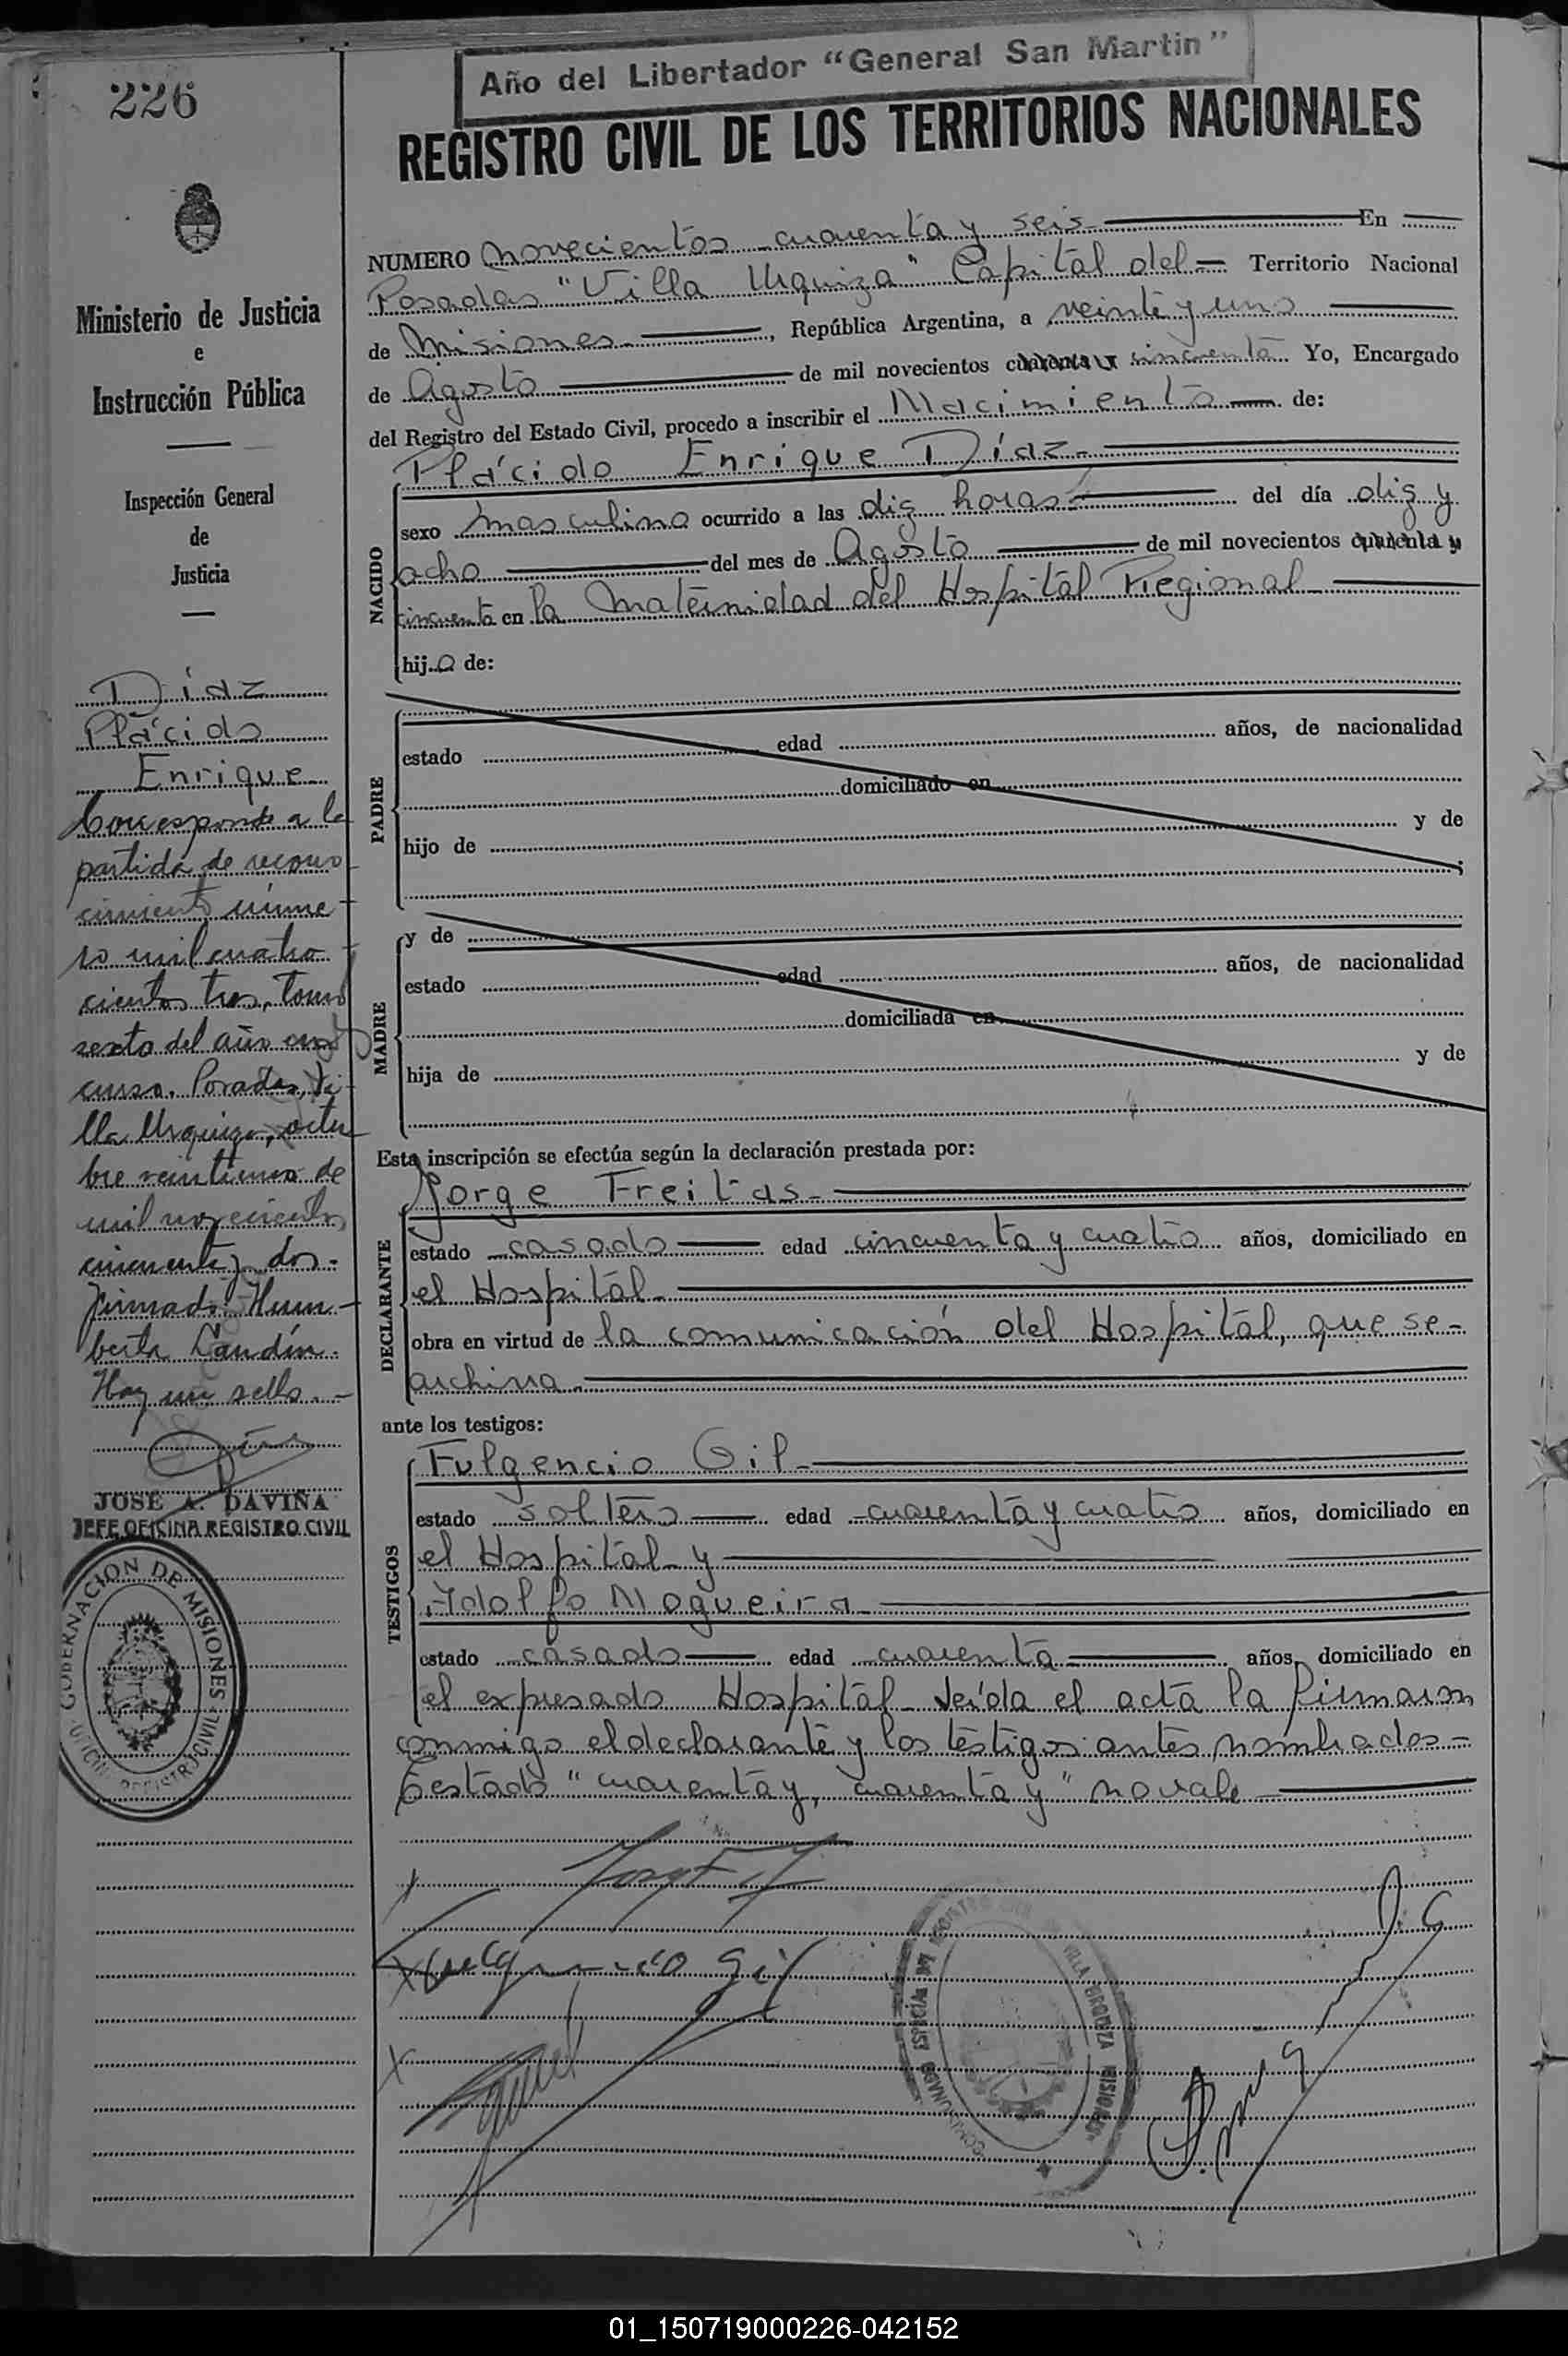 226
Año del Libertador "General San Martin"
REGISTRO CIVIL DE LOS TERRITORIOS NACIONALES
Ministerio de Justicia
e
Instrucción Pública
Inspección General
de
Justicia
Díaz
Plácido
Enrique
Corresponde a la
partida de recono
cimiento núme-
ro mil cuatro-
cientos tres, tomo
sexto del año en
curso. Posadas, Vi-
lla Urquiza, octu
bre veintiuno de
mil novecientos
cincuenta y dos.
Firmado: Hum-
berto Candín.
Hay un sello.-
JOSÉ A. DAVIÑA
JEFE OFICINA REGISTRO CIVIL
GOBERNACION DE MISIONES
OFICINA REGISTRO CIVIL
NUMERO novecientos cuarenta y seis En
Posadas "Villa Urquiza" Capital del Territorio Nacional
de Misiones, República Argentina, a veinte y uno
de Agosto de mil novecientos cuarenta y cincuenta Yo, Encargado
del Registro del Estado Civil, procedo a inscribir el Nacimiento de:
Plácido Enrique Díaz
NACIDO
sexo masculino ocurrido a las diz horas del día diz y
ocho del mes de Agosto de mil novecientos cuarenta y
cincuenta en la Maternidad del Hospital Regional
hijo de:
PADRE
estado edad años, de nacionalidad
domiciliado en
hijo de y de
;
MADRE
y de
estado edad años, de nacionalidad
domiciliada en
hija de y de
Esta inscripción se efectúa según la declaración prestada por:
DECLARANTE
Jorge Freitas
estado casado edad cincuenta y cuatro años, domiciliado en
el Hospital
obra en virtud de la comunicación del Hospital, que se-
archiva
ante los testigos:
TESTIGOS
Fulgencio Gil
estado soltero edad cuarenta y cuatro años, domiciliado en
el Hospital y
Adolfo Nogueira
estado casado edad cuarenta años, domiciliado en
el expresado Hospital leída el acta la firmaron
conmigo el declarante y los testigos antes nombrados-
Testado "cuarenta y, cuarenta y" no vale
Fulgencio Gil
VILLA URQUIZA MISIONES
01_150719000226-042152